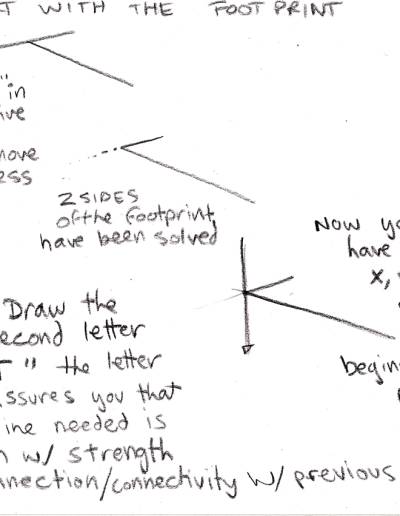 T WITH THE FOOTPRINT
" in
ive
move
ess
2 SIDES
of the footprint,
have been solved
Now yo
have
x,
Draw the
econd letter
T " the letter
ssures you that
ine needed is
n w/ strength
nnection/connectivity w/ previous
begin